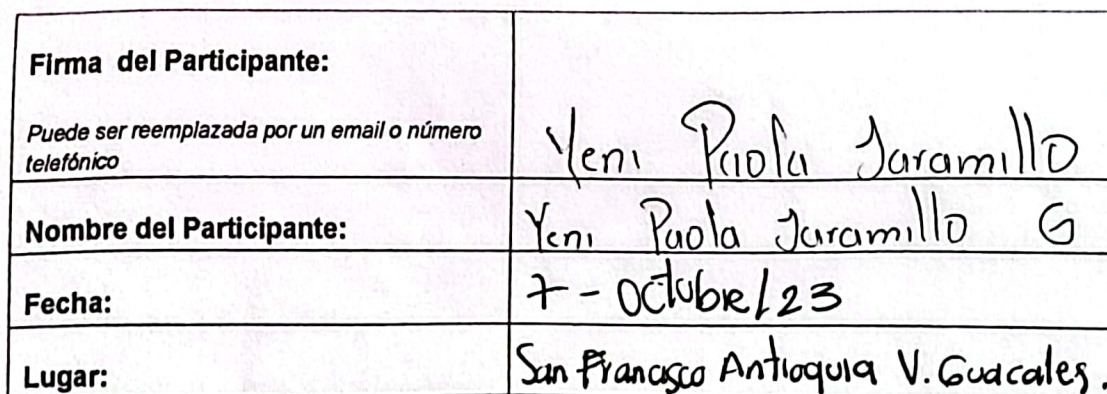 Firma del Participante:
Puede ser reemplazada por un email o número
telefónico
Yeni Paola Jaramillo
Nombre del Participante: Yeni Paola Jaramillo G
Fecha: 7 - Octubre / 23
Lugar: San Francisco Antioquia V. Guacales.